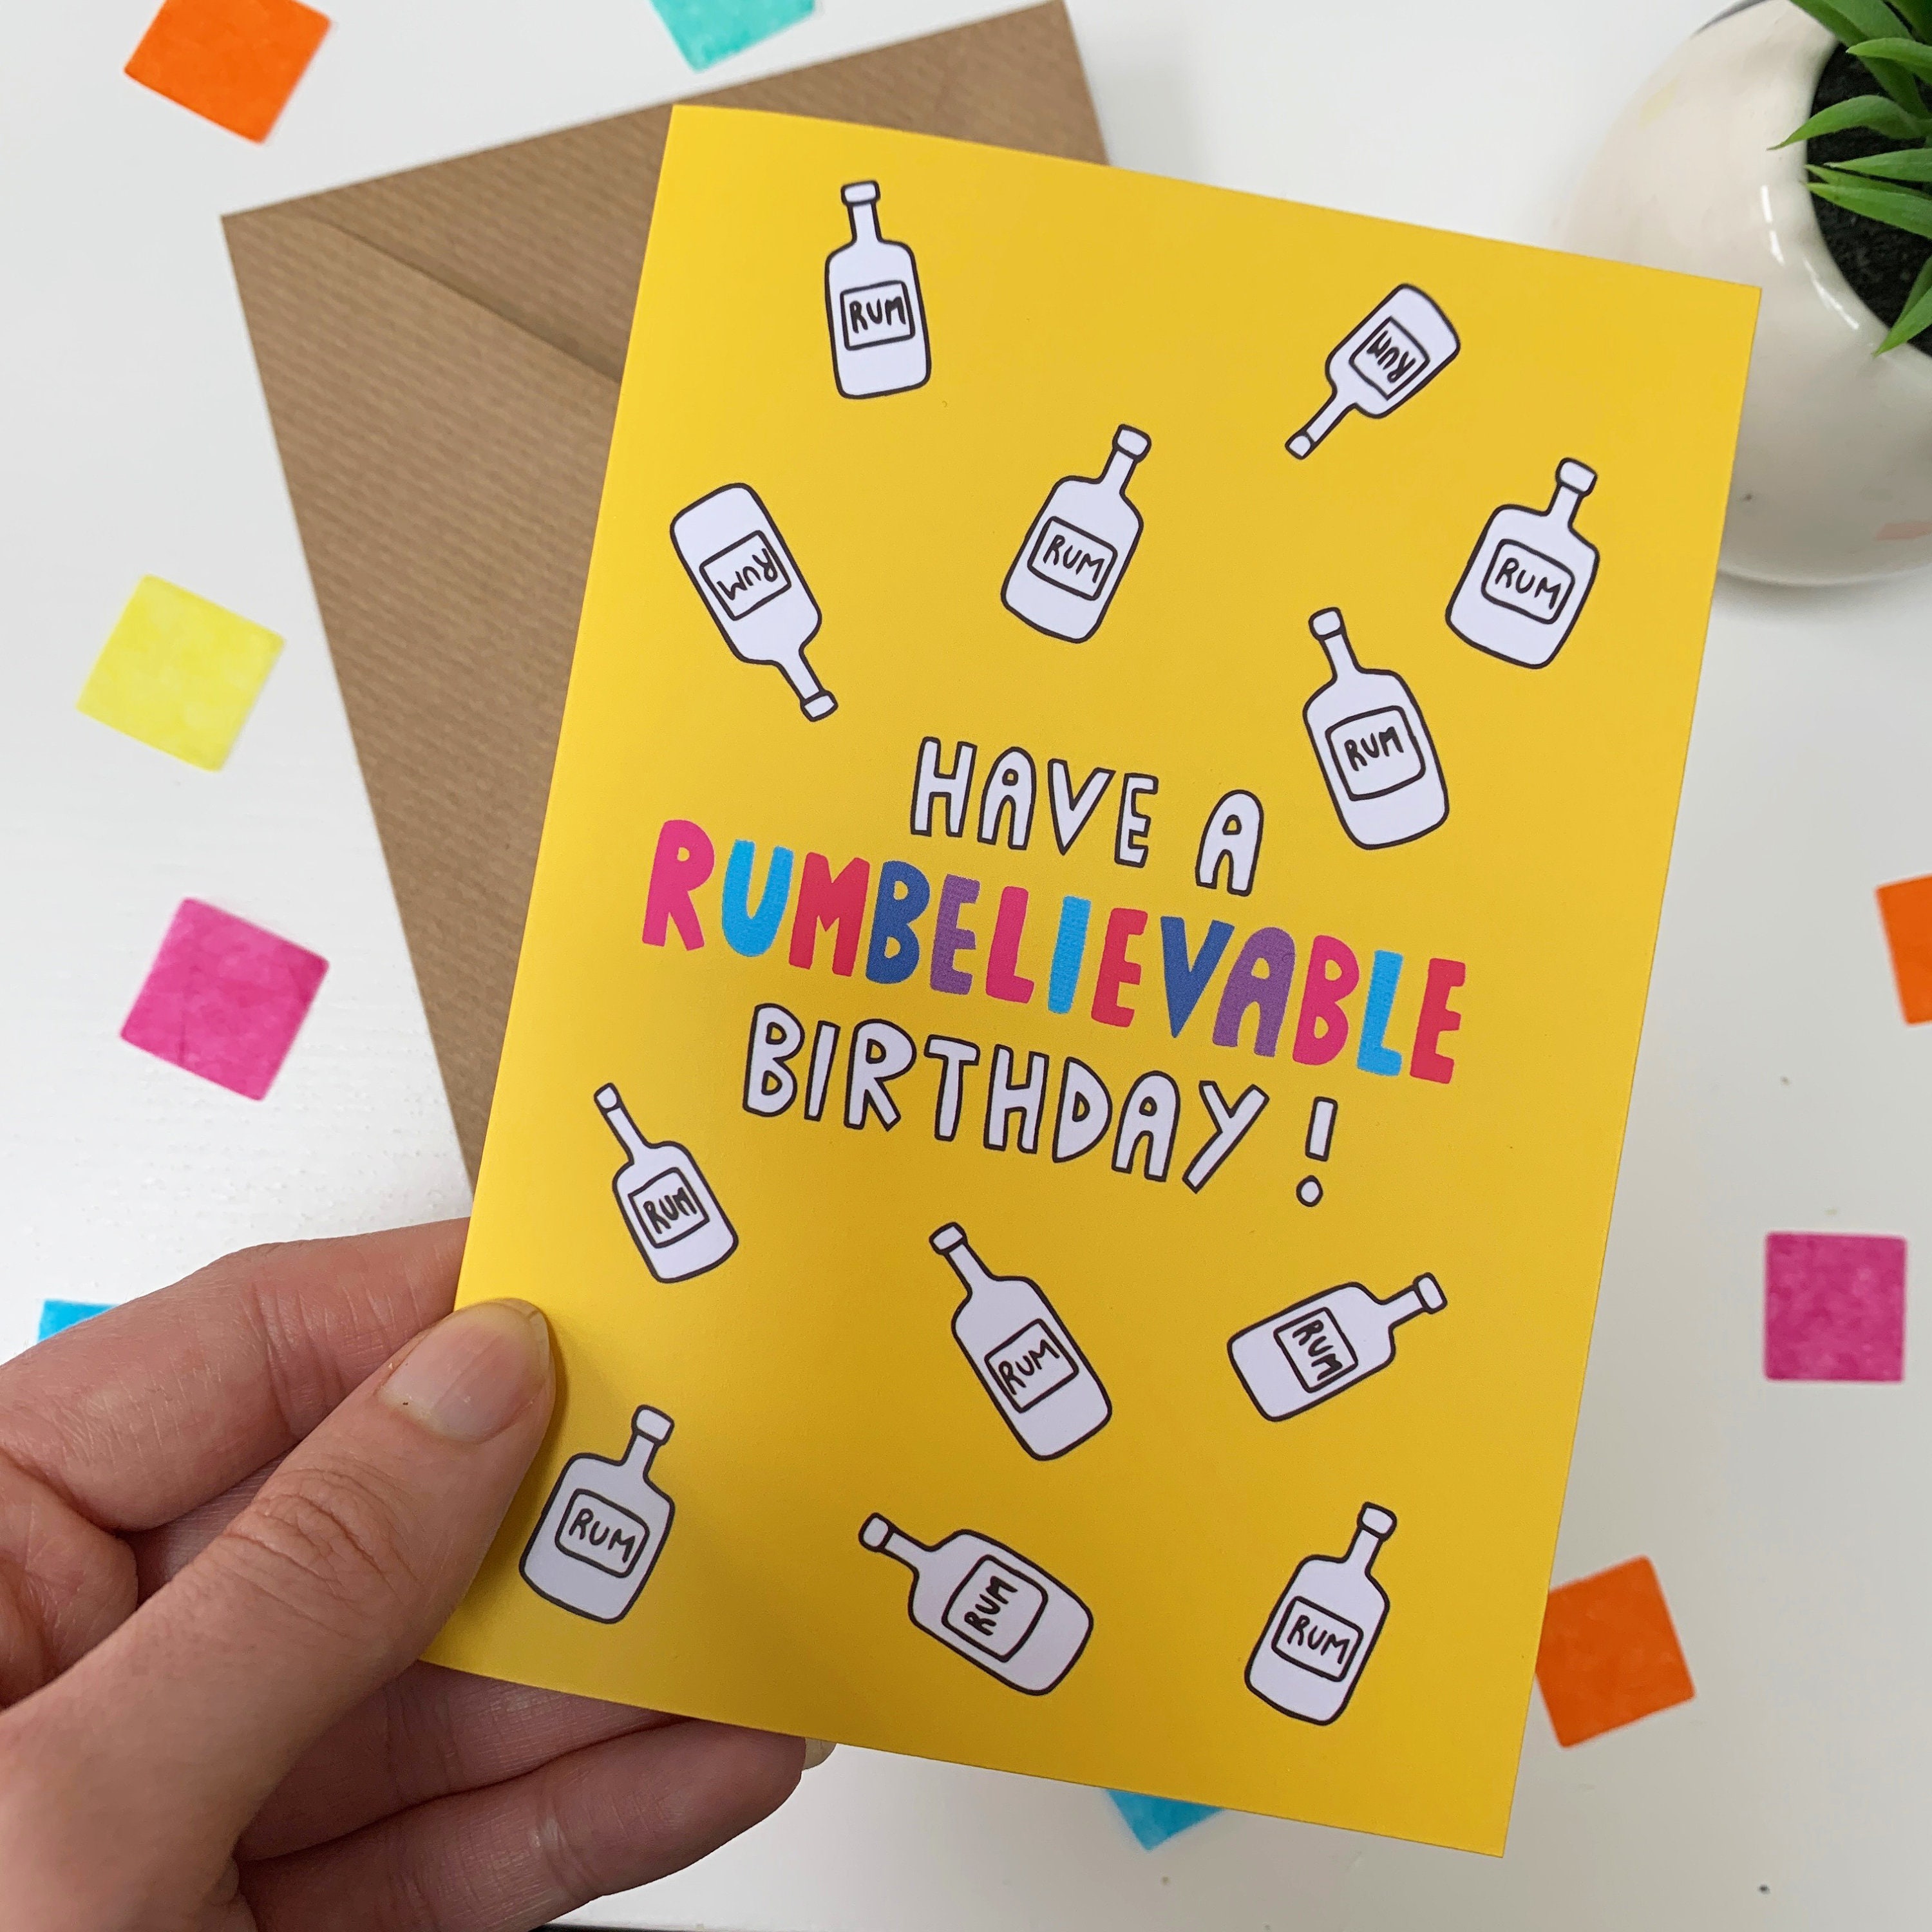 RUM
RUM
RUM
RUM
RUM
RUM
HAVE A
RUMBELIEVABLE
BIRTHDAY!
RUM
RUM
RUM
RUM
RUM
RUM